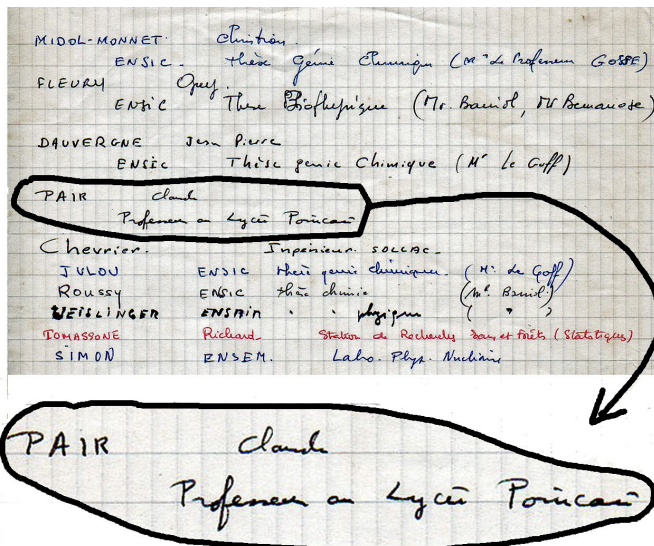 MIDOL-MONNET Christian.
ENSIC. thèse Génie Chimique (Mr le Professeur GOSSE)
FLEURY Guy.
ENSIC These Biophysique (Mr. Barriol,
DAUVERGNE Jean Pierre
ENSIC Thèse genie Chimique (Mr Le Goff)
PAIR Claude
Professeur au Lycée Poincaré
Chevrier. Ingénieur SOLLAC.
JULOU ENSIC thèse genie chimique. (Mr. Le Goff)
Roussy ENSIC thèse chimie (Mr. Barriol)
WEISLINGER ENSAIN " " physique ( " " )
TOMASSONE Richard Station de Recherches et Forêts (Statistiques)
SIMON ENSEM. Labo. Phys. Nucléaire
PAIR Claude
Professeur au Lycée Poincaré